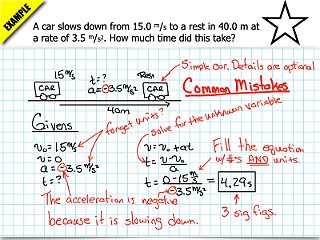 EXAMPLE
A car slows down from 15.0 m/s to a rest in 40.0 m at
a rate of 3.5 m/s². How much time did this take?
Simple car. Details are optional
15 m/s
t = ?
a = -3.5 m/s²
Rest
CAR
CAR
40m
Common Mistakes
forget units?
Givens
v₀ = 15 m/s
v = 0
a = -3.5 m/s²
t = ?
solve for the unknown variable
v = v₀ + at
t = v - v₀ / a
t = 0 - 15 m/s / -3.5 m/s² = 4.29s
Fill the equation
w/ #s AND units.
3 sig figs.
The acceleration is negative
because it is slowing down.